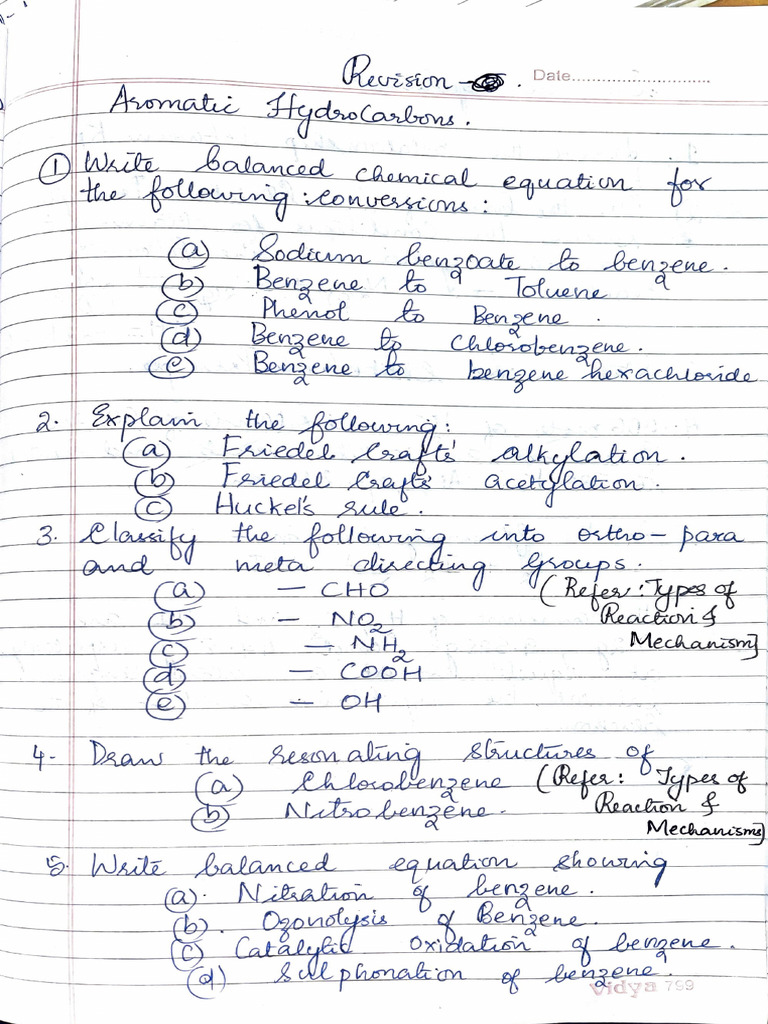 Revision - .
Date..............................
Aromatic Hydrocarbons.
① Write balanced chemical equation for
the following : conversions :
(a) Sodium benzoate to benzene.
(b) Benzene to Toluene
(c) Phenol to Benzene .
(d) Benzene to Chlorobenzene.
(e) Benzene to benzene hexachloride
2. Explain the following:
(a) Friedel Crafts' alkylation .
(b) Friedel Crafts' acetylation .
(c) Huckel's rule .
3. Classify the following into ortho - para
and meta directing groups.
(a) - CHO (Refer : Types of
(b) - NO₂ Reaction &
(c) - NH₂ Mechanism]
(d) - COOH
(e) - OH
4. Draw the resonating structures of
(a) Chlorobenzene (Refer : Types of
(b) Nitrobenzene. Reaction &
Mechanisms]
5. Write balanced equation showing
(a). Nitration of benzene .
(b). Ozonolysis of Benzene.
(c) Catalytic Oxidation of benzene.
(d) Sulphonation of benzene.
Vidya 799